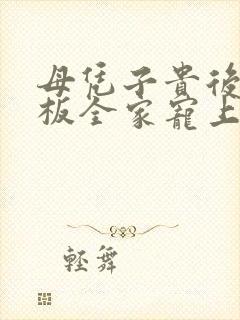 母凭子貴後
板全家寵上
輕舞